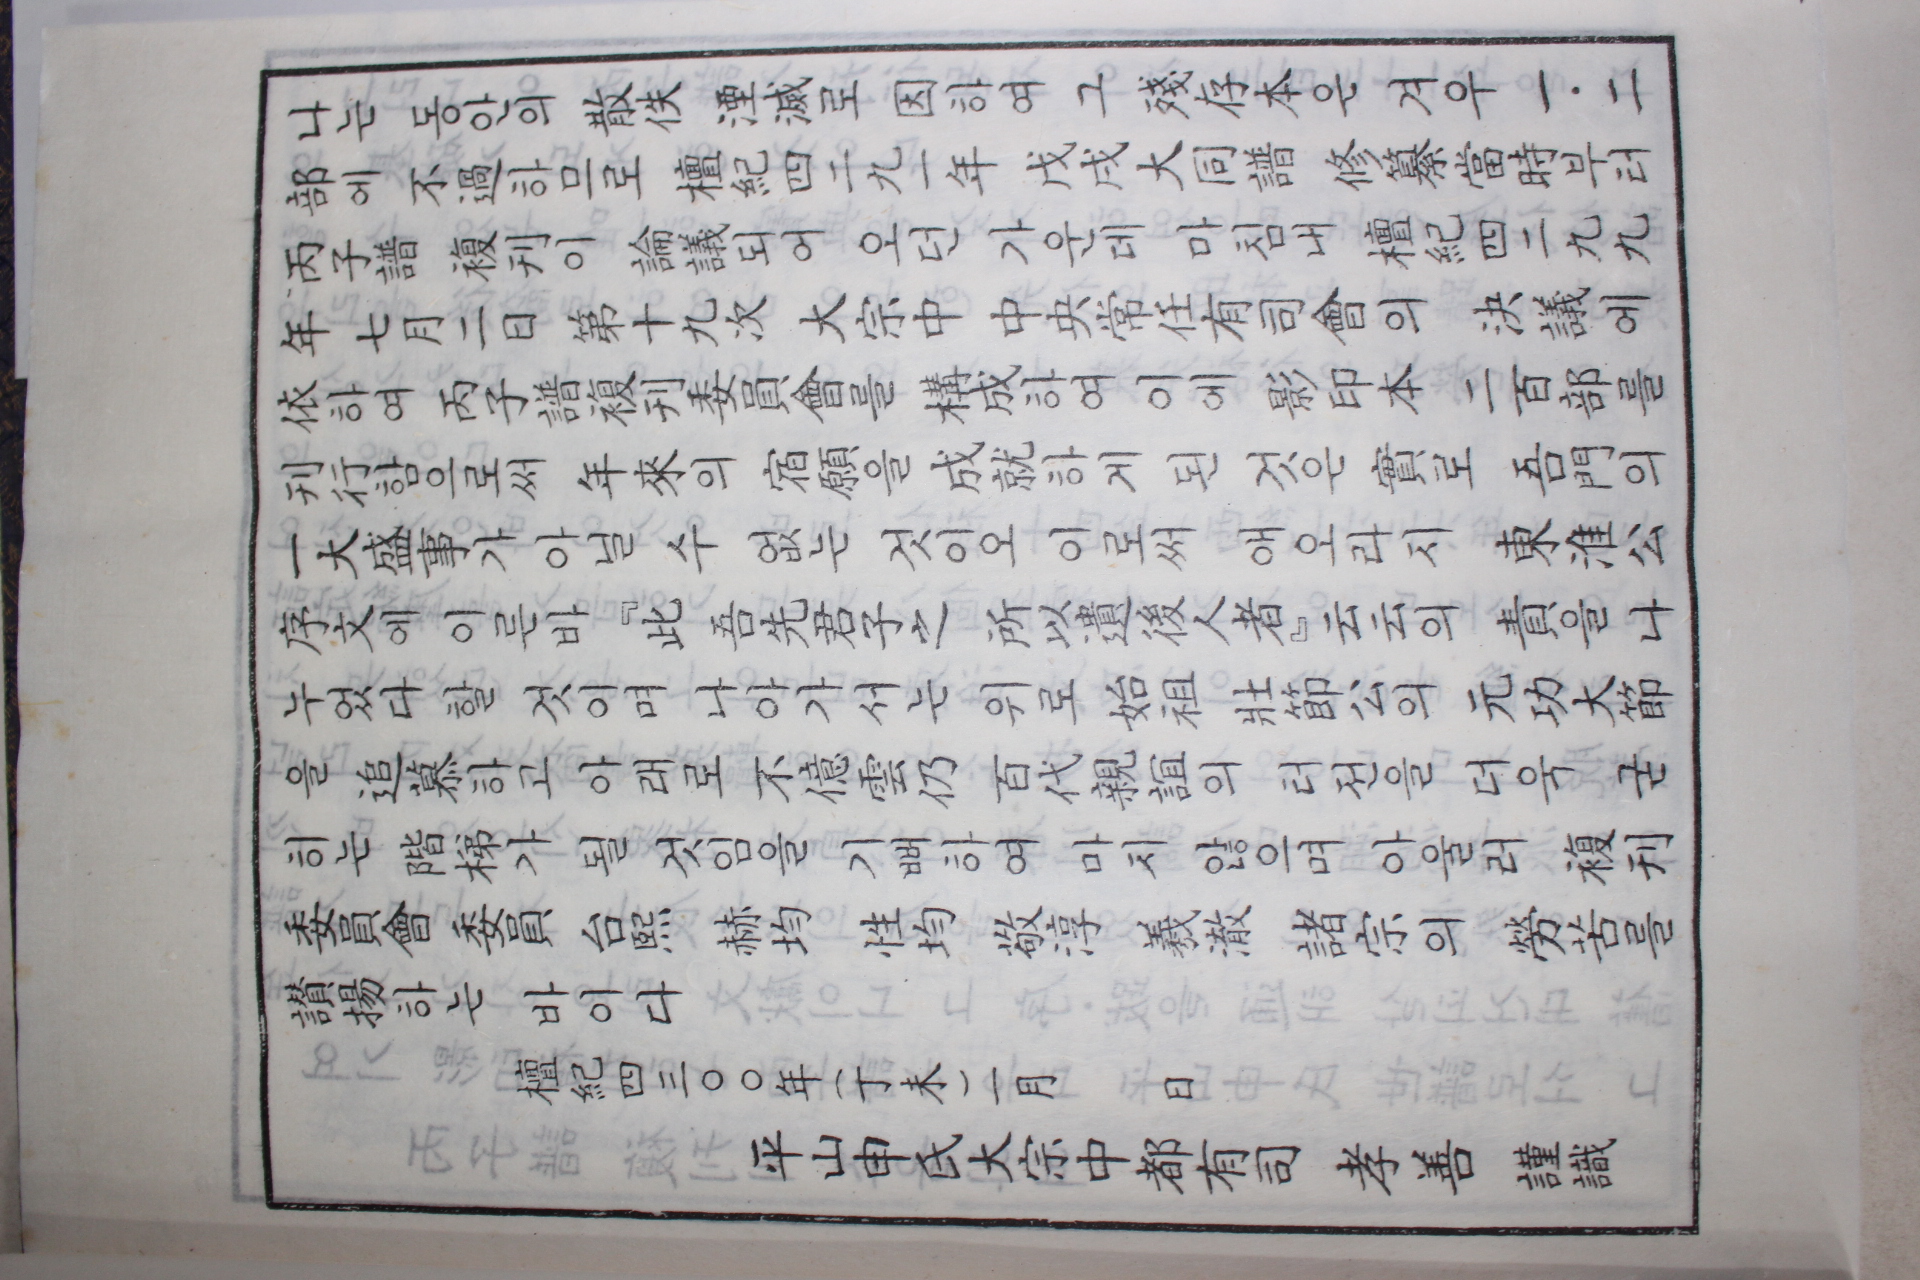 나는 동안의 散佚 湮滅로 因하여 그 殘存本은 겨우 一·二
部에 不過하므로 檀紀四二九一年 戊戌大同譜 修纂當時부터
丙子譜 複刊이 論議되어 오던 가운데 마침내 檀紀四二九九
年 七月二日 第十九次 大宗中 中央常任有司會의 決議에
依하여 丙子譜複刊委員會를 構成하여 이에 影印本 二百部를
刊行함으로써 年來의 宿願을 成就하게 된 것은 實로 吾門의
一大盛事가 아닐 수 없는 것이오 이로써 애오라지 東淮公
序文에 이른바 『此 吾先君子之 所以遺後人者』云云의 責을 나
누었다 할 것이며 나아가서는 위로 始祖 壯節公의 元功大節
을 追慕하고 아래로 不億雲仍 百代親誼의 터전을 더욱 굳
히는 階梯가 될 것임을 기뻐하여 마지 않으며 아울러 複刊
委員會委員 台熙 赫均 性均 敬淳 羲澈 諸宗의 勞苦를
讚揚하는 바이다
檀紀四三〇〇年(丁未)二月 日
平山申氏大宗中都有司 孝善 謹識